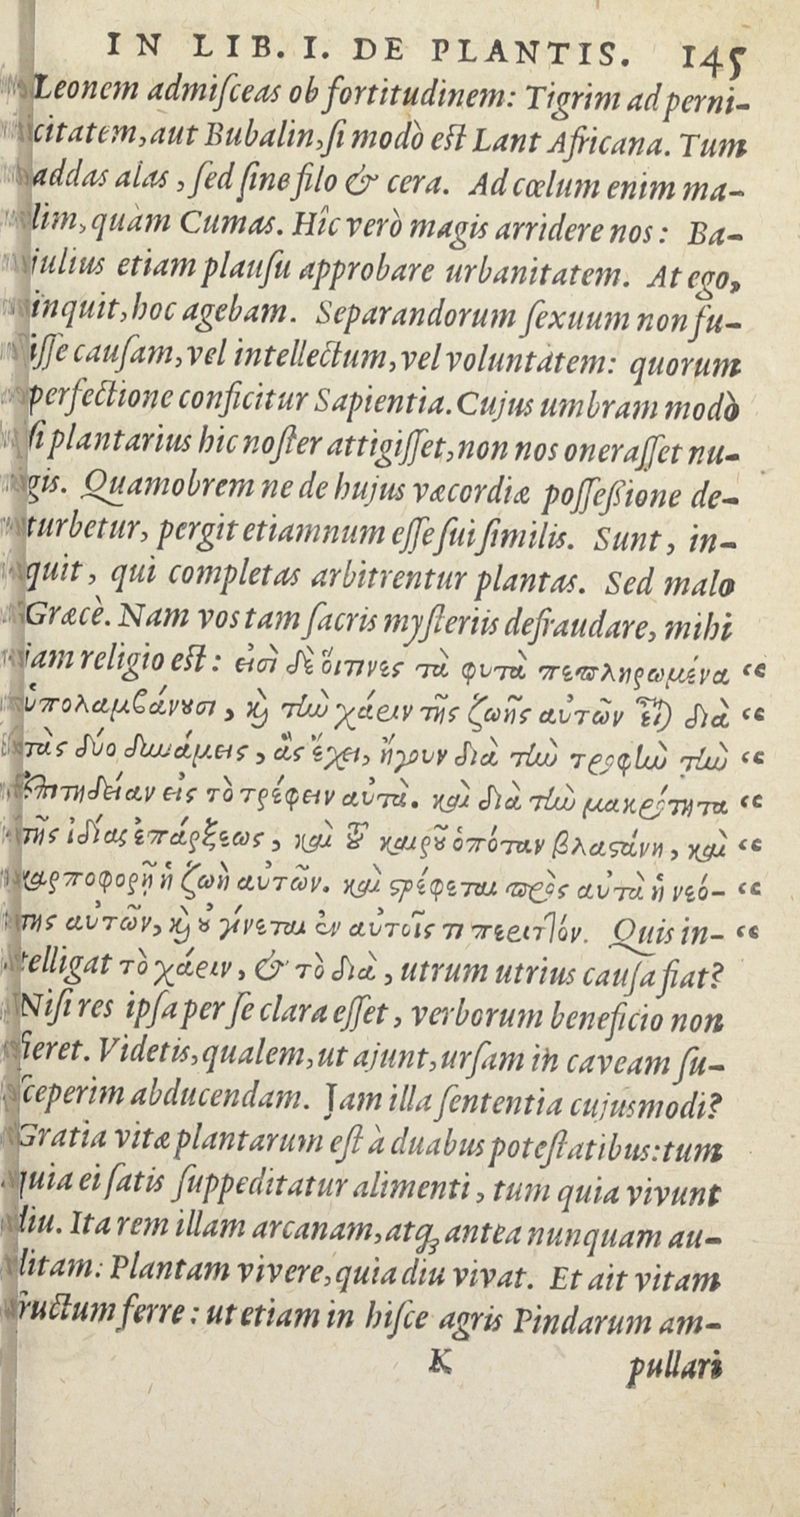 IN LIB. I. DE PLANTIS. 145
Leonem admiſceas ob fortitudinem: Tigrim ad perni-
citatem, aut Bubalin, ſi modò eſt Lant Africana. Tum
addas alas, ſed ſine filo & cera. Ad cœlum enim ma-
lim, quàm Cumas. Hîc verò magis arridere nos: Ba-
julius etiam plauſu approbare urbanitatem. At ego,
inquit, hoc agebam. Separandorum ſexuum non fu-
iſſe cauſam, vel intellectum, vel voluntatem: quorum
perfectione conficitur Sapientia. Cujus umbram modò
ſi plantarius hic noſter attigiſſet, non nos oneraſſet nu-
gis. Quamobrem ne de hujus væcordiæ poſſeſsione de-
turbetur, pergit etiamnum eſſe ſui ſimilis. Sunt, in-
quit, qui completas arbitrentur plantas. Sed malo
Græcè. Nam vos tam ſacris myſteriis defraudare, mihi
jam religio eſt: εἰσὶ δὲ οἵτινες τὰ φυτὰ πεπληρωμένα “
ὑπολαμβάνουσι, καὶ τὴν χάριν τῆς ζωῆς αὐτῶν εἶναι διὰ “
τὰς δύο δυνάμεις, ἃς ἔχει, ἤγουν διὰ τὴν τροφὴν τὴν “
ἐπιτηδείαν εἰς τὸ τρέφειν αὐτά. καὶ διὰ τὴν μακρότητα “
τῆς ἰδίας ἐπάρξεως, καὶ τοῦ καιροῦ ὁπόταν βλαστάνῃ, καὶ “
καρποφορῇ ἡ ζωὴ αὐτῶν. καὶ στρέφεται πρὸς αὐτὰ ἡ νεό- “
της αὐτῶν, καὶ οὐ γίνεται ἐν αὐτοῖς τι περιττόν. Quis in- “
telligat τὸ χάριν, & τὸ διὰ, utrum utrius cauſa fiat?
Niſi res ipſa per ſe clara eſſet, verborum beneficio non
fieret. Videtis, qualem, ut ajunt, urſam in caveam ſu-
ſceperim abducendam. Jam illa ſententia cujusmodi?
Gratia vitæ plantarum eſt à duabus poteſtatibus: tum
quia ei ſatis ſuppeditatur alimenti, tum quia vivunt
diu. Ita rem illam arcanam, atq; antea nunquam au-
ditam: Plantam vivere, quia diu vivat. Et ait vitam
fructum ferre: ut etiam in hiſce agris Pindarum am-
K pullari